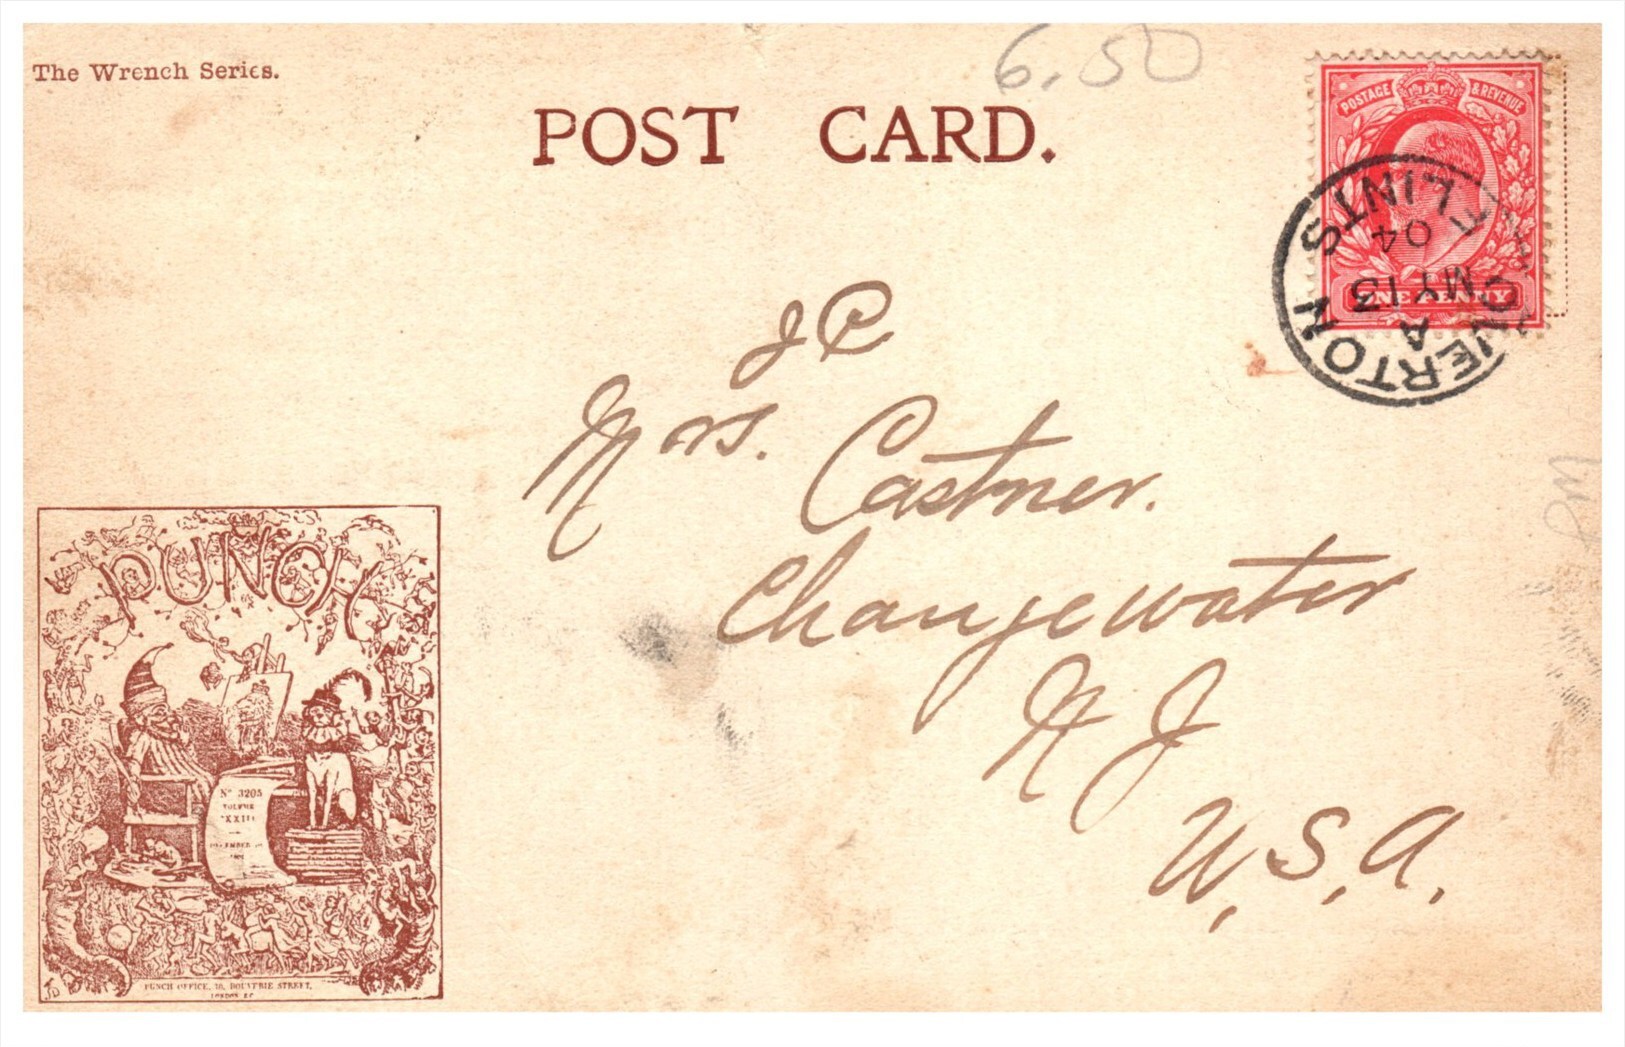 The Wrench Series.
6.50
POST CARD.
POSTAGE & REVENUE
ONE PENNY
OVERTON
FLINTS
A
MY 13
04
J C
Mrs. Castner.
Changewater
N J
U.S.A.
PUNCH
Nº 3205
VOLUME
PUNCH OFFICE, 10, BOUVERIE STREET,
LONDON E.C.